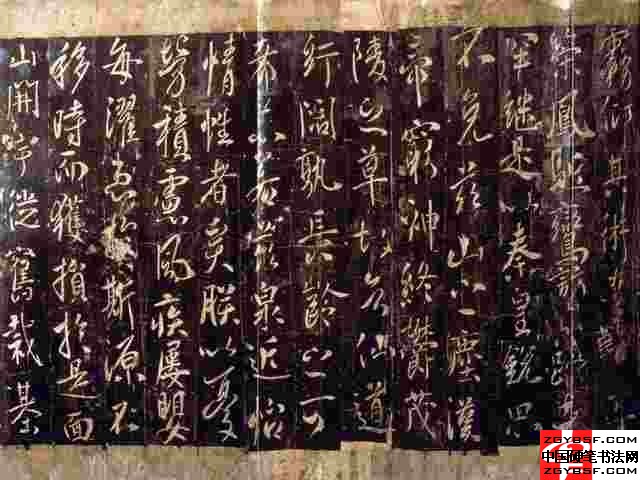 霧仰其術
鳳
罕繼是以秦皇銳思
不免茲山之塵漢
帝窮神終鬱茂
陵之草故知仙道
行闊孰長齡之可
希豈若茲泉近怡
情性者矣朕以憂
勞積慮風疾屢嬰
每濯患於斯源不
移時而獲損於是面
山開宇從舊裁基
ZGYBSF.COM
中国硬笔书法网
ZGYBSF.COM